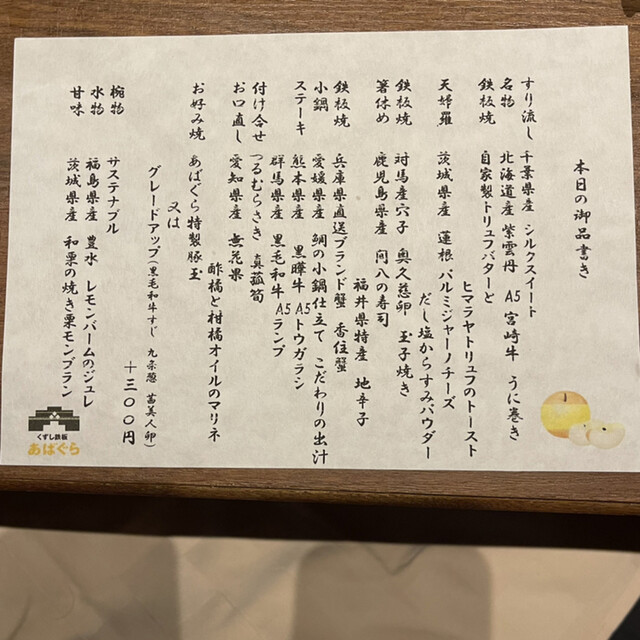 本日の御品書き
すり流し 千葉県産 シルクスイート
名物 北海道産 紫雲丹 A5 宮崎牛 うに巻き
鉄板焼 自家製トリュフバターと
ヒマラヤトリュフのトースト
天婦羅 茨城県産 蓮根 パルミジャーノチーズ
だし塩からすみパウダー
鉄板焼 対馬産穴子 奥久慈卵 玉子焼き
箸休め 鹿児島県産 間八の寿司
福井県特産 地辛子
鉄板焼 兵庫県直送ブランド蟹 香住蟹
小鍋 愛媛県産 鯛の小鍋仕立て こだわりの出汁
ステーキ 熊本県産 黒曄牛 A5トウガラシ
群馬県産 黒毛和牛 A5ランプ
付け合せ つるむらさき 真菰筍
お口直し 愛知県産 無花果
酢橘と柑橘オイルのマリネ
お好み焼 あばぐら特製豚玉
又は
グレードアップ(黒毛和牛すじ 九条葱 苗美人卵)
+三〇〇円
椀物 サステナブル
水物 福島県産 豊水 レモンバームのジュレ
甘味 茨城県産 和栗の焼き栗モンブラン
くずし鉄板
あばぐら